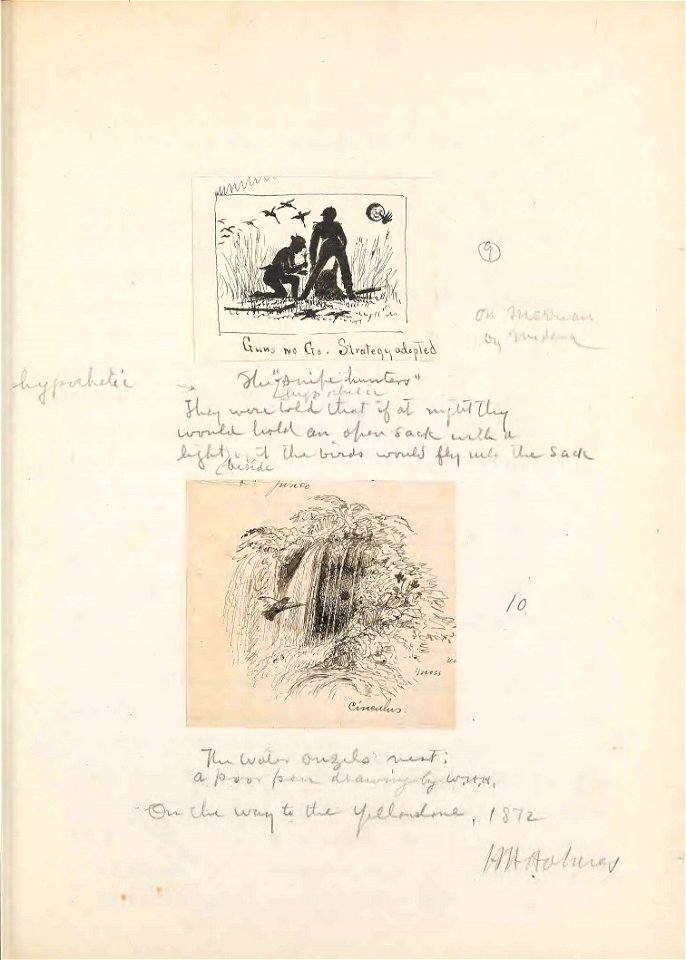 9
on Merriam
by
Guns no Go. Strategy adopted
hypothetic
The "snipe hunters"
hypothetic
They were told that if at night they
would hold an open sack with a
light it the birds would fly into the sack
beside
junco
10
moss
Cinculus.
The water ouzels nest;
a poor pen drawing by W.H.H.
On the way to the Yellowstone, 1872
WHHolmes